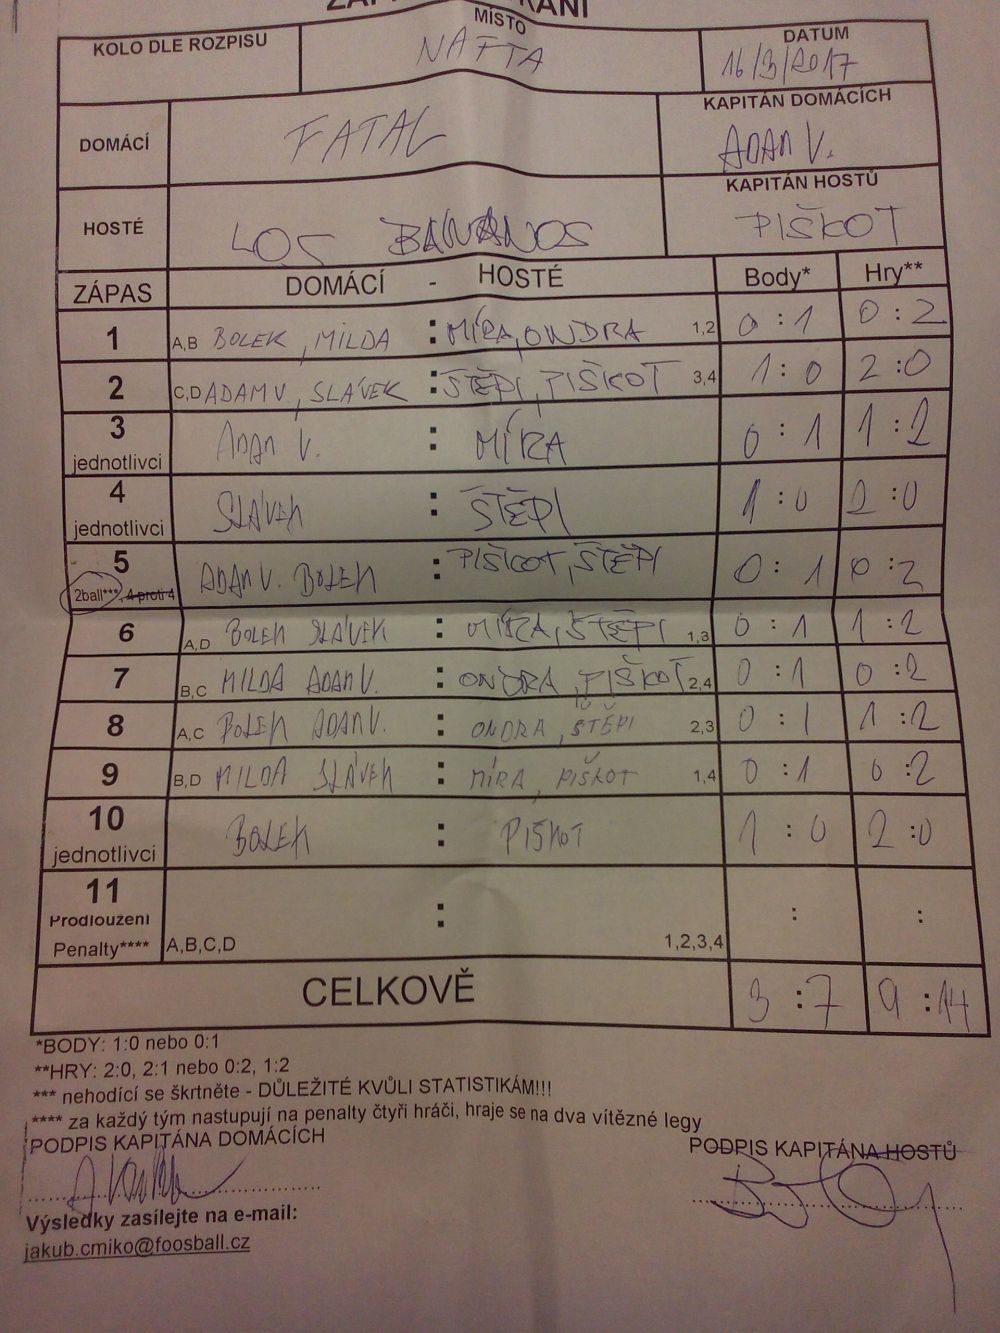 KOLO DLE ROZPISU MÍSTO NAFTA DATUM 16/3/2017
DOMÁCÍ FATAL KAPITÁN DOMÁCÍCH ADAM V.
HOSTÉ LOS BANANOS KAPITÁN HOSTŮ PIŠKOT
ZÁPAS DOMÁCÍ - HOSTÉ Body* Hry**
1 A,B BOLEK, MILDA : MÍRA, ONDRA 1,2 0 : 1 0 : 2
2 C,D ADAM V, SLÁVEK : ŠTĚPI, PIŠKOT 3,4 1 : 0 2 : 0
3 jednotlivci ADAM V. : MÍRA 0 : 1 1 : 2
4 jednotlivci SLÁVEK : ŠTĚPI 1 : 0 2 : 0
5 2ball***, 4 proti 4 ADAM V. BOLEK : PIŠKOT, ŠTĚPI 0 : 1 0 : 2
6 A,D BOLEK SLÁVEK : MÍRA, ŠTĚPI 1,3 0 : 1 1 : 2
7 B,C MILDA ADAM V. : ONDRA, PIŠKOT 2,4 0 : 1 0 : 2
8 A,C BOLEK ADAM V. : ONDRA, ŠTĚPI 2,3 0 : 1 1 : 2
9 B,D MILDA SLÁVEK : MÍRA, PIŠKOT 1,4 0 : 1 0 : 2
10 jednotlivci BOLEK : PIŠKOT 1 : 0 2 : 0
11 Prodloužení Penalty**** A,B,C,D : 1,2,3,4 : :
CELKOVĚ 3 : 7 9 : 14
*BODY: 1:0 nebo 0:1
**HRY: 2:0, 2:1 nebo 0:2, 1:2
*** nehodící se škrtněte - DŮLEŽITÉ KVŮLI STATISTIKÁM!!!
**** za každý tým nastupují na penalty čtyři hráči, hraje se na dva vítězné legy
PODPIS KAPITÁNA DOMÁCÍCH PODPIS KAPITÁNA HOSTŮ
Výsledky zasílejte na e-mail:
jakub.cmiko@foosball.cz